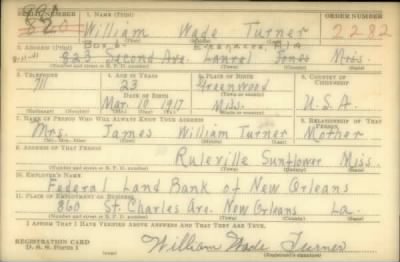 SERIAL NUMBER 1. NAME (Print) ORDER NUMBER
William Wade Turner 2282
2. ADDRESS (Print)
823 Second Ave. Laurel Jones Miss.
(Number and street or R. F. D. number) (Town) (County) (State)
3. TELEPHONE 4. AGE IN YEARS 5. PLACE OF BIRTH 6. COUNTRY OF CITIZENSHIP
711 23 Greenwood
DATE OF BIRTH (Town or county)
Mar. 10 1917 Miss. U.S.A.
(Exchange) (Number) (Mo.) (Day) (Yr.) (State or country)
7. NAME OF PERSON WHO WILL ALWAYS KNOW YOUR ADDRESS 8. RELATIONSHIP OF THAT PERSON
Mrs. James William Turner Mother
(Mr., Mrs., Miss) (First) (Middle) (Last)
9. ADDRESS OF THAT PERSON
Ruleville Sunflower Miss.
(Number and street or R. F. D. number) (Town) (County) (State)
10. EMPLOYER'S NAME
Federal Land Bank of New Orleans
11. PLACE OF EMPLOYMENT OR BUSINESS
860 St. Charles Ave. New Orleans La.
(Number and street or R. F. D. number) (Town) (County) (State)
I AFFIRM THAT I HAVE VERIFIED ABOVE ANSWERS AND THAT THEY ARE TRUE.
REGISTRATION CARD
D. S. S. Form 1 (over) William Wade Turner
(Registrant's signature)